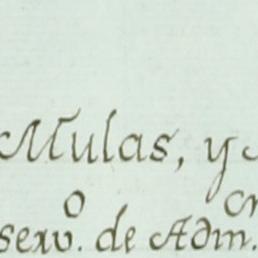 Mulas, y
serv.º de Adm.